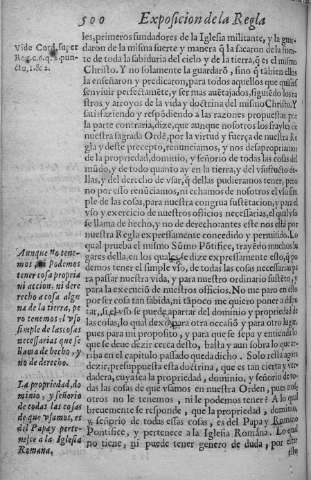 500 Exposicion de la Regla
les, primeros fundadores de la Iglesia militante, y la guar
daron de la misma suerte y manera q̃ la sacaron de la fuen
te de toda la sabiduria del cielo y de la tierra, q̃ es el mismo
Christo. Y no solamente la guardarõ, sino q̃ tãbien ellos
la enseñaron y predicaron, para todos aquellos que quisiesen
seruirle perfectamẽte, y ser mas auẽtajados, siguiẽdo los ra
stros y arroyos de la vida y doctrina del mismo Christo. Y
satisfaziendo y respõdiendo a las razones propuestas por
la parte contraria, dize, que aunque nosotros los frayles de
nuestra sagrada Ordẽ, por la virtud y fuerça de nuestra Re
gla y deste precepto, renunciamos, y nos desapropriamos
de la propriedad, dominio, y señorio de todas las cosas del
mũdo, y de todo quanto ay en la tierra, y del vsufructo de
llas, y del derecho de vsar, q̃ dellas pudieramos tener, pero
no por esto renũciamos, ni echamos de nosotros el vso sim
ple de las cosas, para nuestra congrua sustẽtacion, y para el
vso y exercicio de nuestros oficios necessarios, el qual vso
se llama de hecho, y no de derecho: antes este nos està por
nuestra Regla expressamente concedido y permitido. Lo
qual prueba el mismo Sũmo Põtifice, trayẽdo muchos lu
gares della, en los quales se dize expressamente esto, q̃ po
demos tener el simple vso, de todas las cosas necessarias pa
ra passar nuestra vida, y para nuestro ordinario sustẽto, y
para la execuciõ de nuestros oficios. No me paro en esto
por ser cosa tan sabida, ni tãpoco me quiero poner a dispu
tar, si el vso se puede apartar del dominio y propriedad de
las cosas, lo qual dexo para otra ocasiõ y para otro lugar,
pues para mi proposito, y para que se sepa y entienda lo
que se deue dezir cerca desto, basta y aun sobra lo que ar
riba en el capitulo passado queda dicho. Solo resta agora
dezir, presupuesta esta doctrina, que es tan cierta y ver-
dadera, cuya sea la propriedad, dominio, y señorio de to-
das las cosas de que vsamos en nuestra Orden, pues nos
otros no le tenemos, ni le podemos tener? A lo qual
breuemente se responde, que la propriedad, dominio,
y señorio de todas essas cosas, es del Papa y Romano
Pontifice, y pertenece a la Iglesia Romana. Lo qual
no tiene, ni puede tener genero de duda, por estar
Vide Cord. super
Reg. c. 6. q. 2. pun-
cto, 1. & 2.
Aunque no tene-
mos, ni podemos
tener cosa propria
ni accion, ni dere
recho a cosa algu
na de la tierra, pe
ro tenemos el vso
simple de las cosas
necessarias que se
llama de hecho, y
no de derecho.
La propriedad, do
minio, y señorio
de todas las cosas
de que vsamos, es
del Papa y perte-
nesce a la Iglesia
Romana.